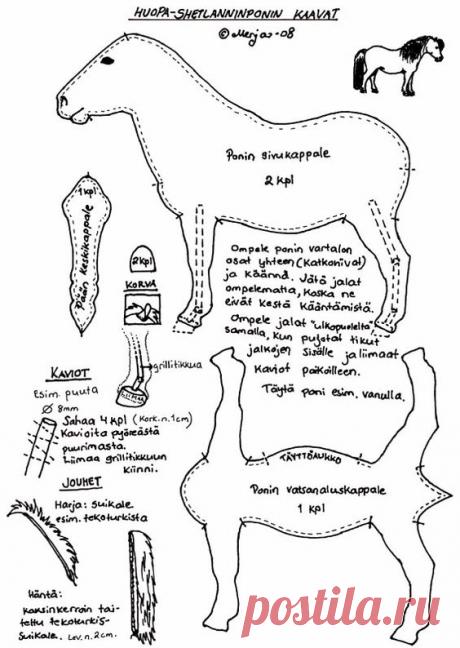 HUOPA-SHETLANNINPONIN KAAVAT
© Merja -08
Ponin sivukappale
2 kpl
1 kpl
Pään keskikappale
2 kpl
KORVA
Ompele ponin vartalon
osat yhteen (Katkoviivat)
ja käännä. Jätä jalat
ompelematta, koska ne
eivät kestä kääntämistä.
Ompele jalat "ulkopuolelta"
samalla, kun pujotat tikut
jalkojen sisälle ja liimaat
kaviot paikoilleen.
Täytä poni esim. vanulla.
grillitikkua
KAVIOT
Esim. puuta
Ø 8mm
Sahaa 4 kpl (Kork. n. 1cm)
Kavioita pyöreästä
puurimasta.
Liimaa grillitikkuun
kiinni.
JOUHET
Harja: suikale
esim. tekoturkista
Häntä:
kaksinkerroin tai-
tettu tekoturkis-
suikale. Lev. n. 2cm.
TÄYTTÖAUKKO
Ponin vatsanaluskappale
1 kpl
postila.ru